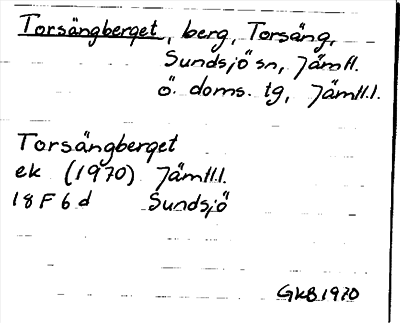 Torsängberget, berg, Torsäng,
Sundsjö sn, Jämtl.
Ö. doms. tg, Jämtl.l.
Torsängberget
ek (1970) Jämtl.l.
18 F 6 d Sundsjö
GKB 1970